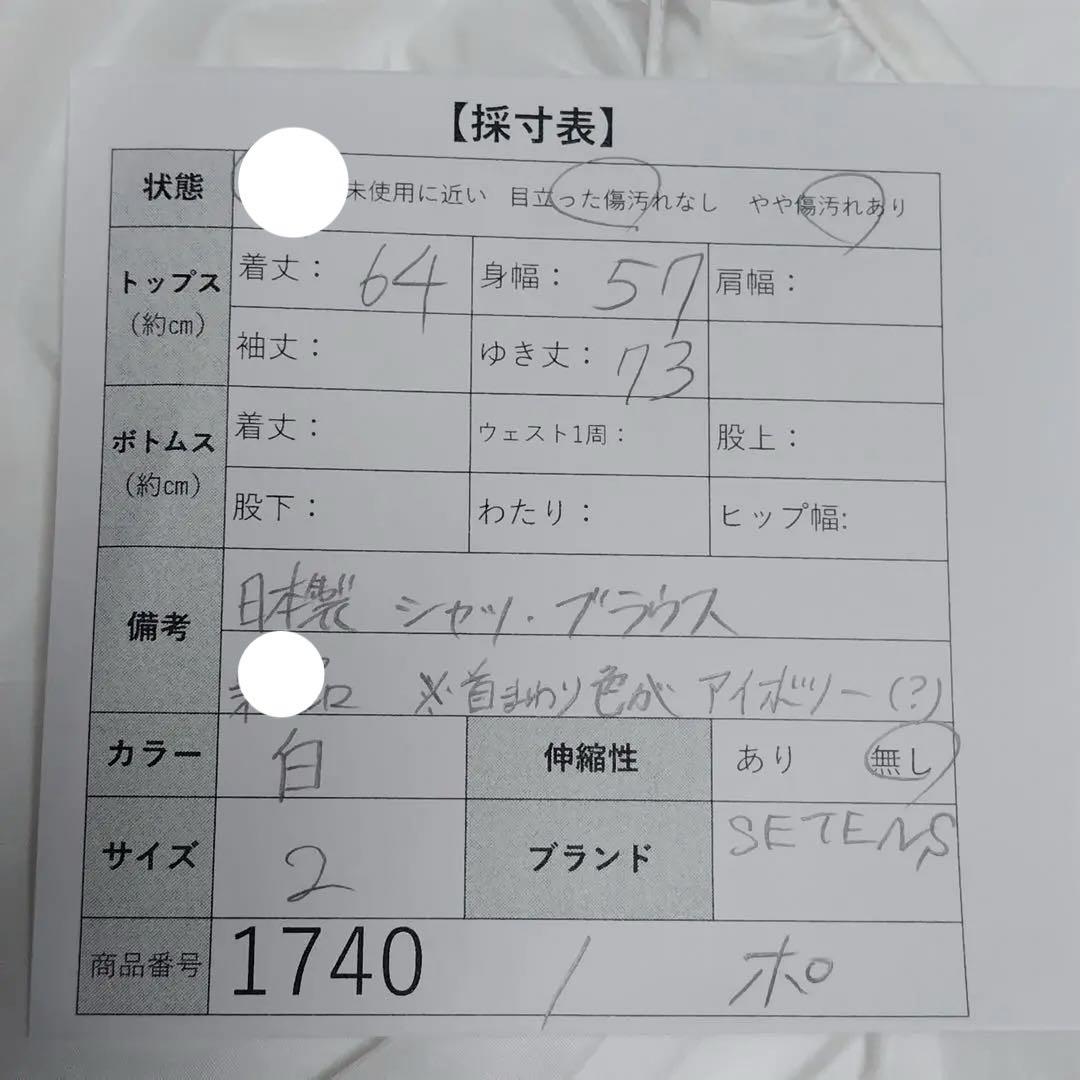 【採寸表】
状態 未使用に近い 目立った傷汚れなし やや傷汚れあり
トップス (約cm) 着丈： 64 身幅： 57 肩幅：
袖丈： ゆき丈： 73
ボトムス (約cm) 着丈： ウェスト1周： 股上：
股下： わたり： ヒップ幅:
備考 日本製 シャツ・ブラウス
※首まわり色が アイボリー(?)
カラー 白 伸縮性 あり 無し
サイズ 2 ブランド SETENS
商品番号 1740 / ポ